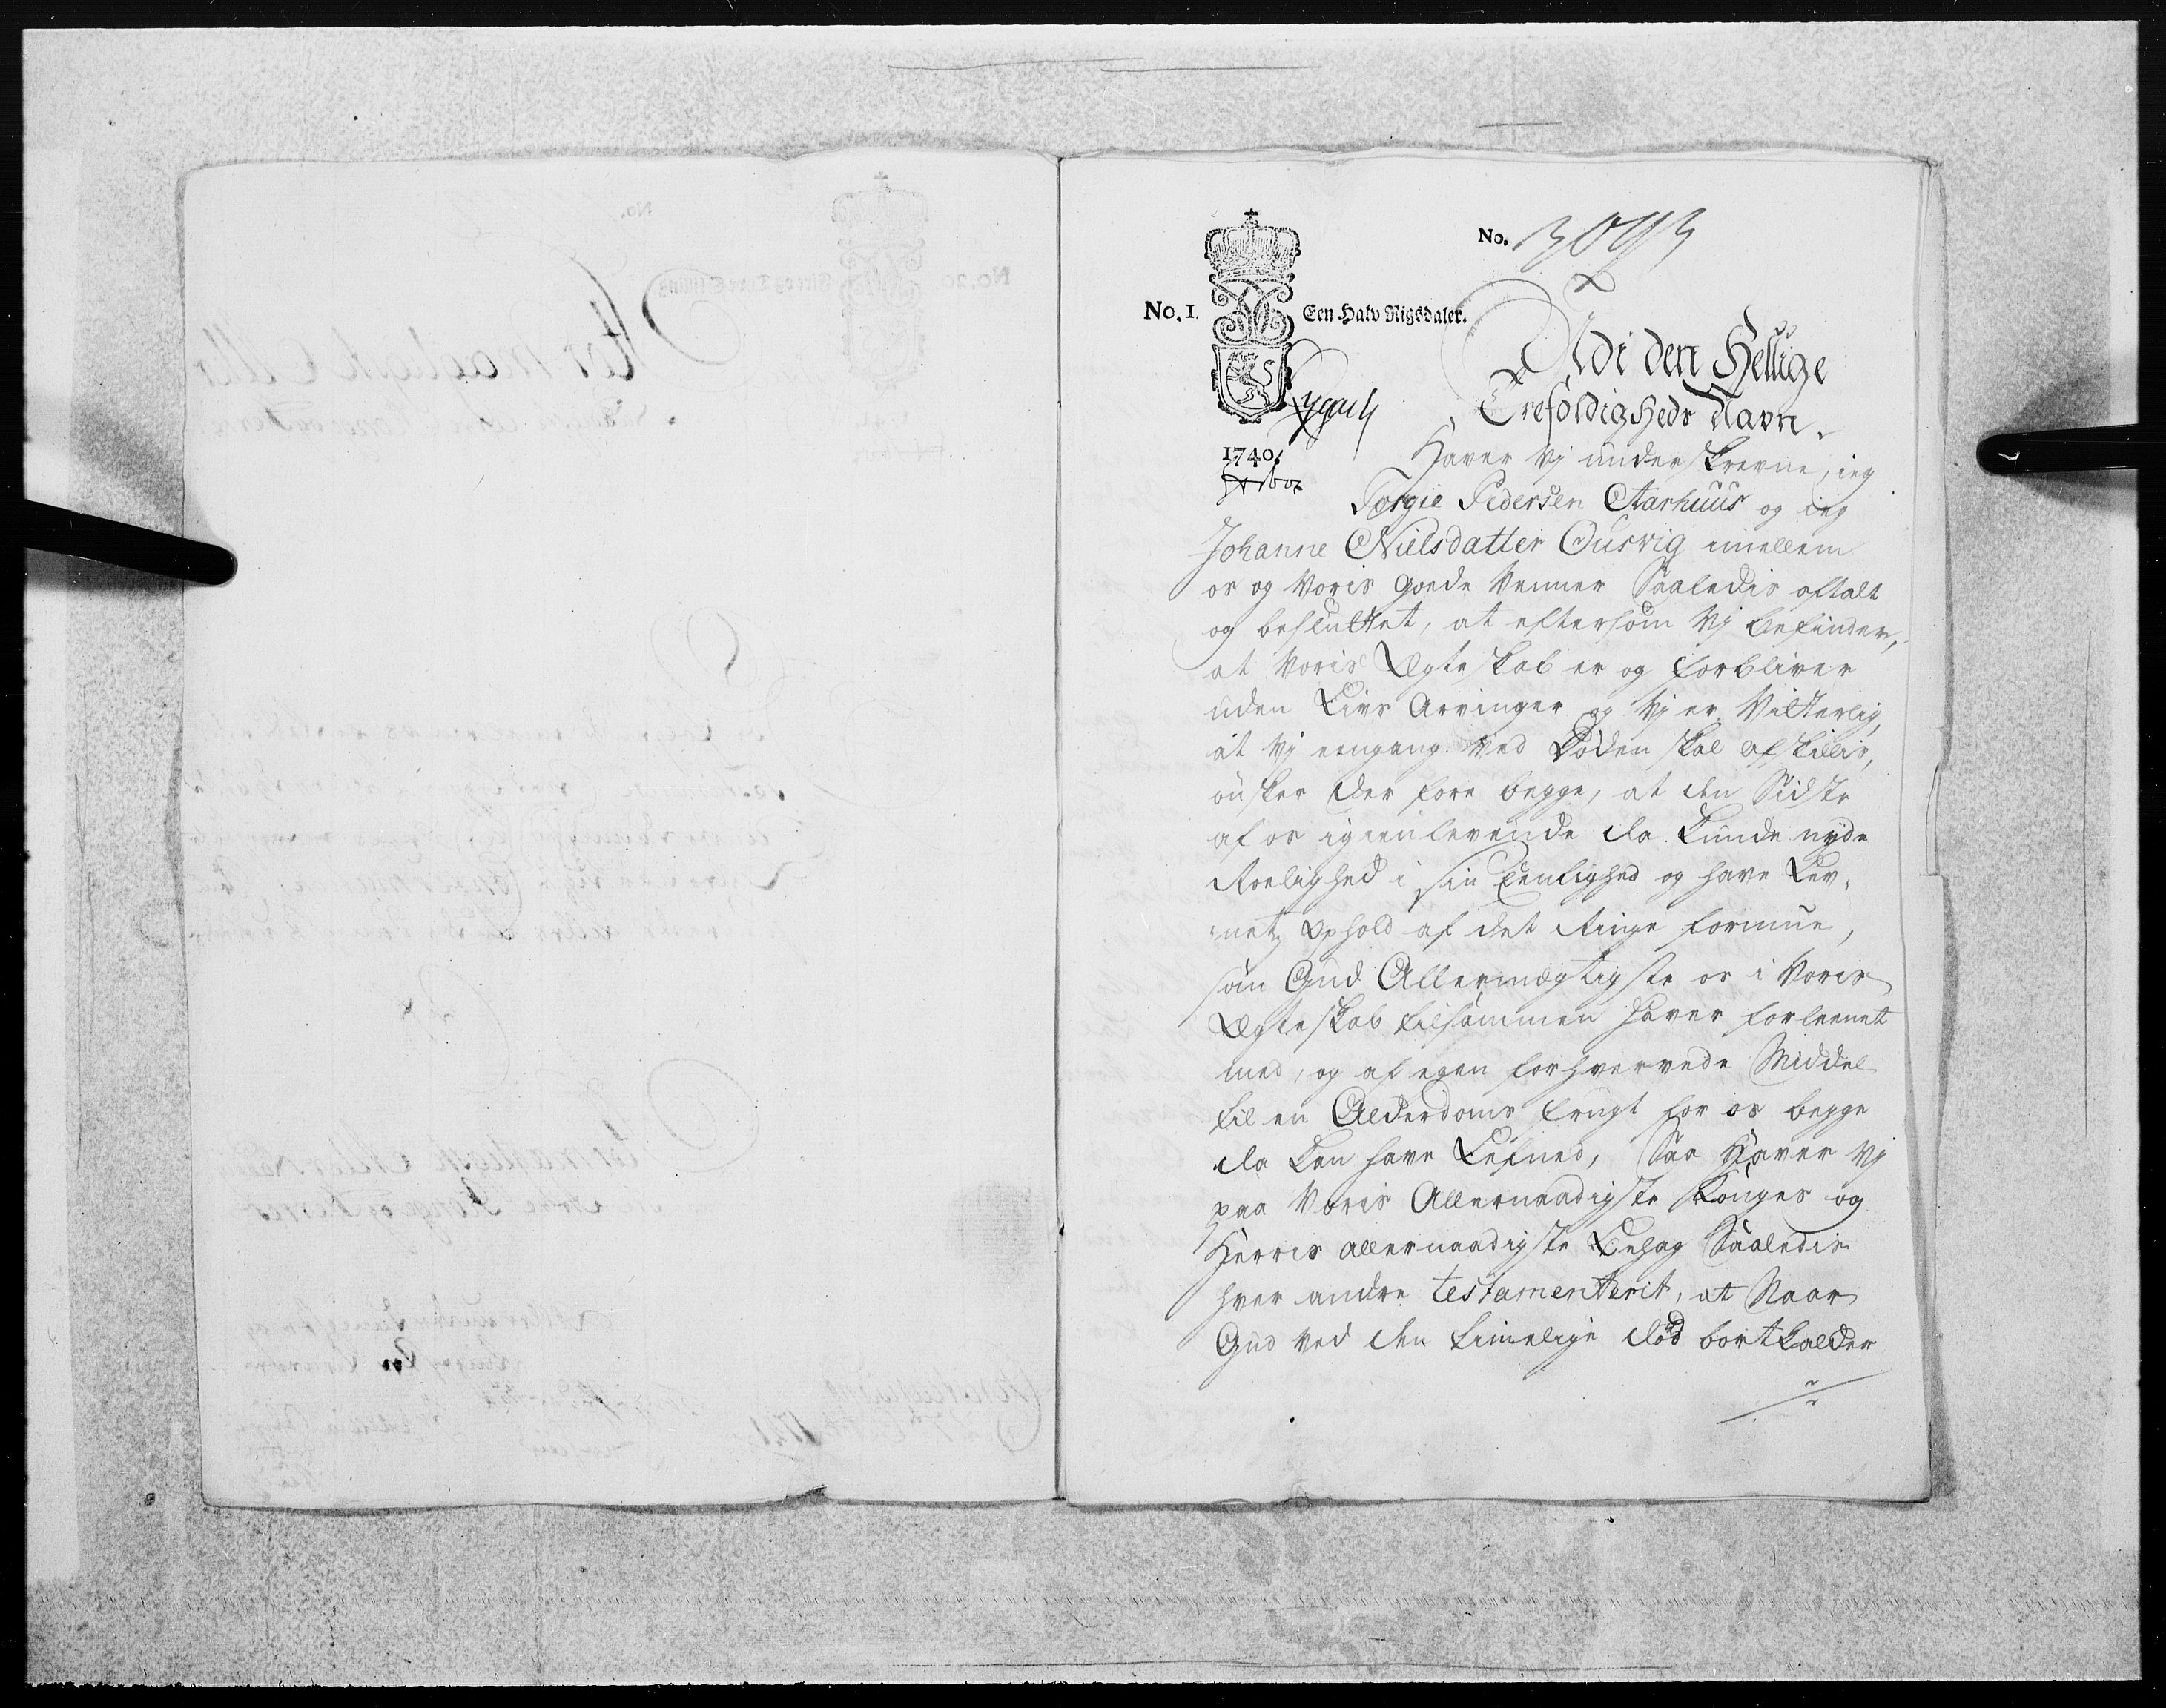 No. 3093
No. 1. Een Halv Rigsdaler.
Udi den Hellige
Trefoldigheds Navn.
1740.
Haver Vj underskrevne, ieg
Torgie Pedersen Aarhuus og ieg
Johanne Nielsdatter Ousvig imellem
os og Voris goede Venner Saaledis aftalt
og besluttet, at eftersom Vj befinder,
at Voris Ægteskab er og forbliver
uden Livs Arvinger og Vj er Vitterlig,
at Vj eengang ved Døden skal afskillis,
ønsker der fore begge, at den Sidste
af os igienlevende da kunde nyde
Roelighed i sin Eenlighed og have Lev,
netz Ophold af det Ringe formue,
som Gud Allermægtigste os i Voris
Ægteskab tilsammen haver forleenett
med, og af egen forhvervede Middel
til en Alderdoms frugt for os begge
da kan have Lefned, Saa Haver Vj
paa Voris Allernaadigste Konges og
Herris allernaadigste Behag Saaledis
hver andre testamenterit, at Naar
Gud ved den timelige død bortkalder